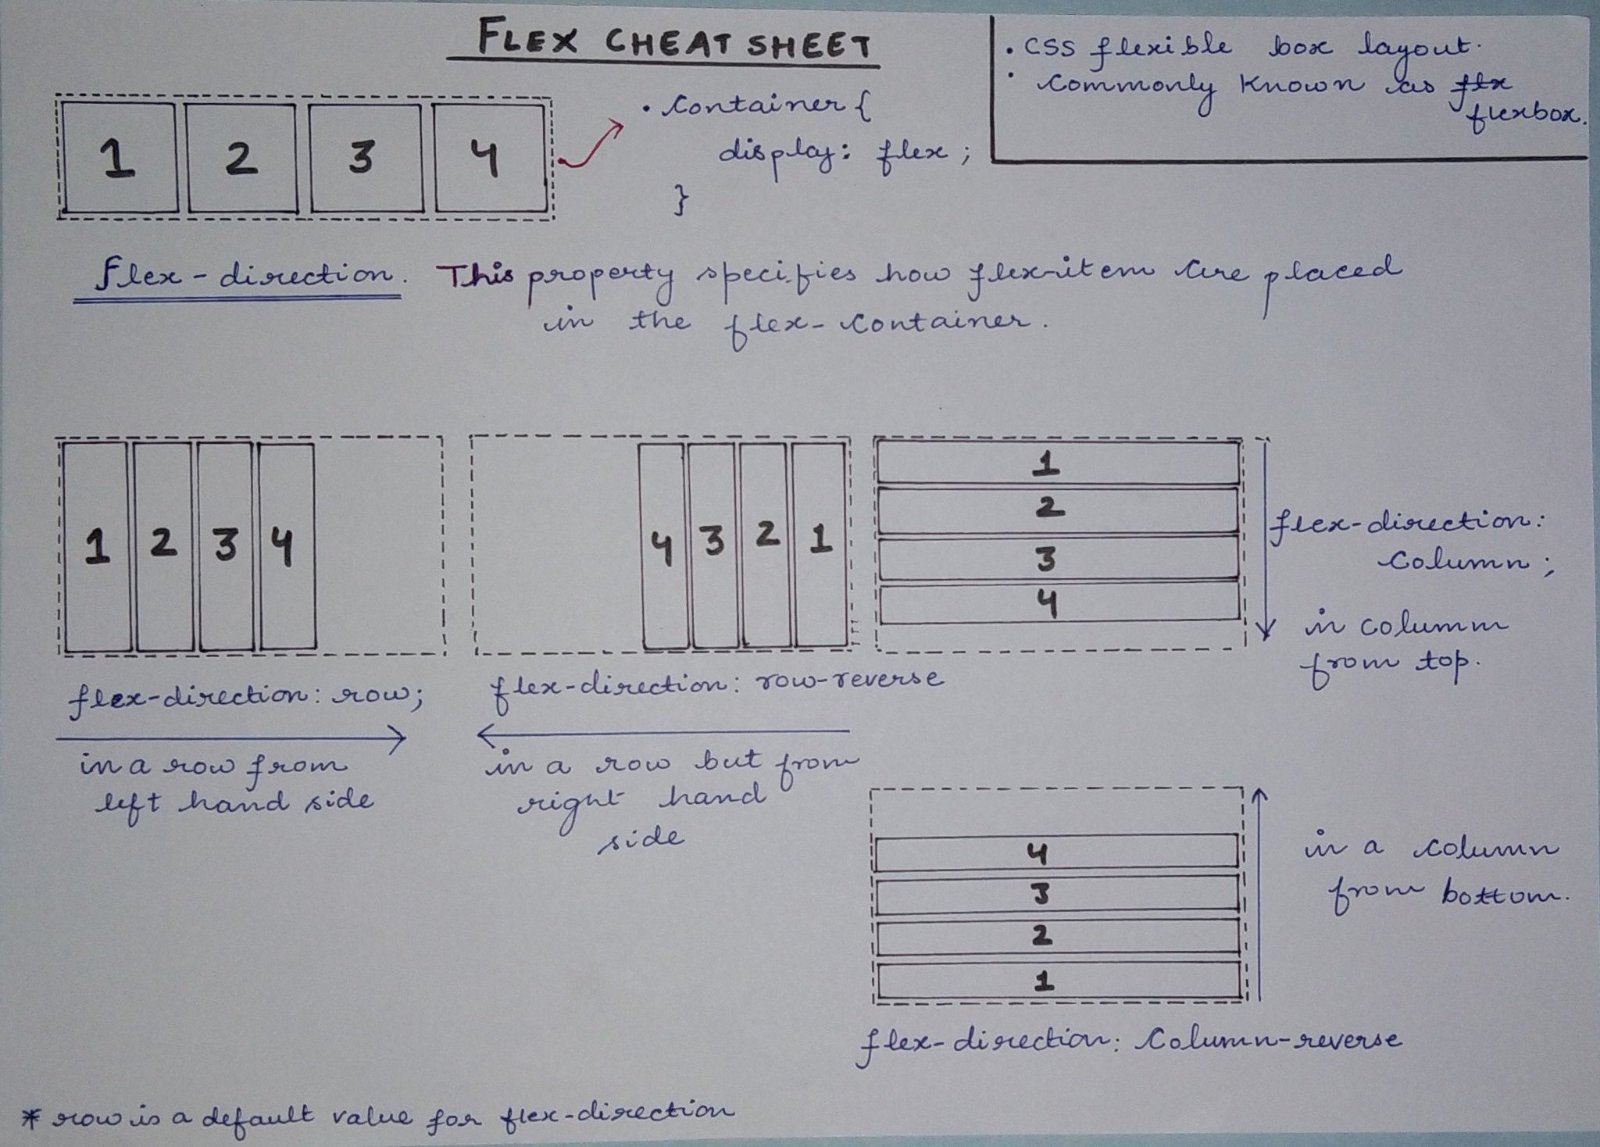 FLEX CHEAT SHEET
• CSS flexible box layout.
• Commonly known as flx
flexbox.
1 2 3 4
• Container {
display: flex ;
}
flex-direction. This property specifies how flex-item are placed
in the flex-container.
1 2 3 4
flex-direction: row;
in a row from
left hand side
4 3 2 1
flex-direction: row-reverse
in a row but from
right hand
side
1
2
3
4
flex-direction:
column ;
in column
from top.
4
3
2
1
in a column
from bottom.
flex-direction: Column-reverse
* row is a default value for flex-direction